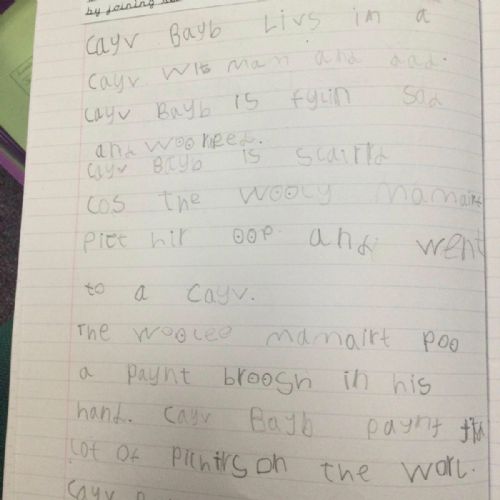 by joining
cayv Bayb Livs in a
cayv wis mam and dad.
cayv Bayb is fylin sad
and wooreed.
cayv Bayb is scairld
cos the wooly mamairt
pict hir oop and went
to a cayv.
The woolee mamairt poo
a paynt broosh in his
hand. cayv Bayb paynt
Lot of pichtrs on the worl.
cayv